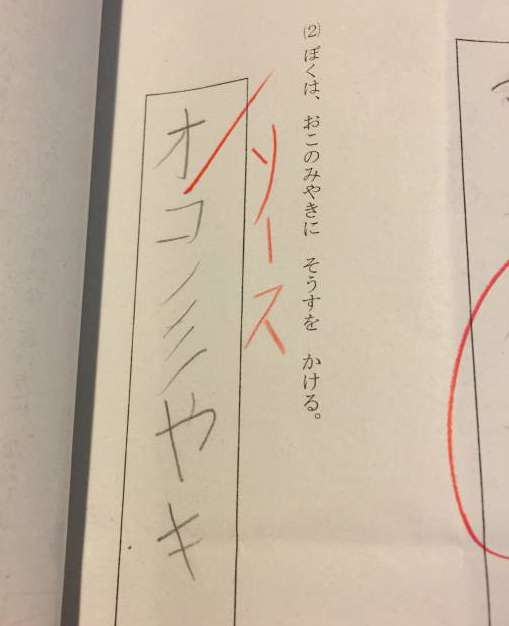 (2) ぼくは、おこのみやきに そうすを かける。
ソース
オコノミヤキ